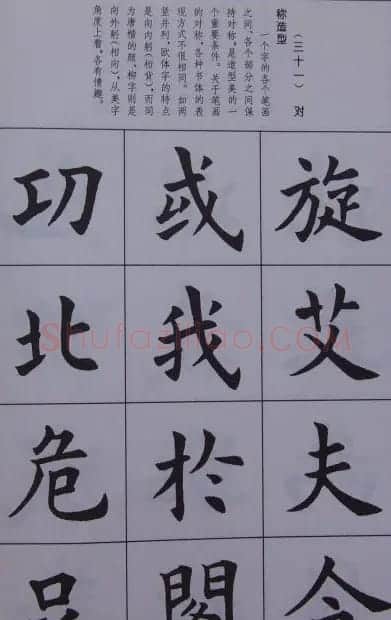 （三十一） 对
称造型
一个字的各个笔画
之间、各个部分之间保
持对称，是造型美的一
个重要条件。关于笔画
的对称，各种书体的表
现方式不很相同。如两
竖并列，欧体字的特点
是向内躬（相背），而同
为唐楷的颜、柳字则是
向外躬（相向），从美字
角度上看，各有情趣。
旋艾夫
或我於閣
㓛北危
Shufaziliao.COM